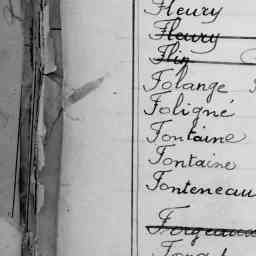 Fleury
Fleury
Flin
Folange
Foligné
Fontaine
Fontaine
Fonteneau